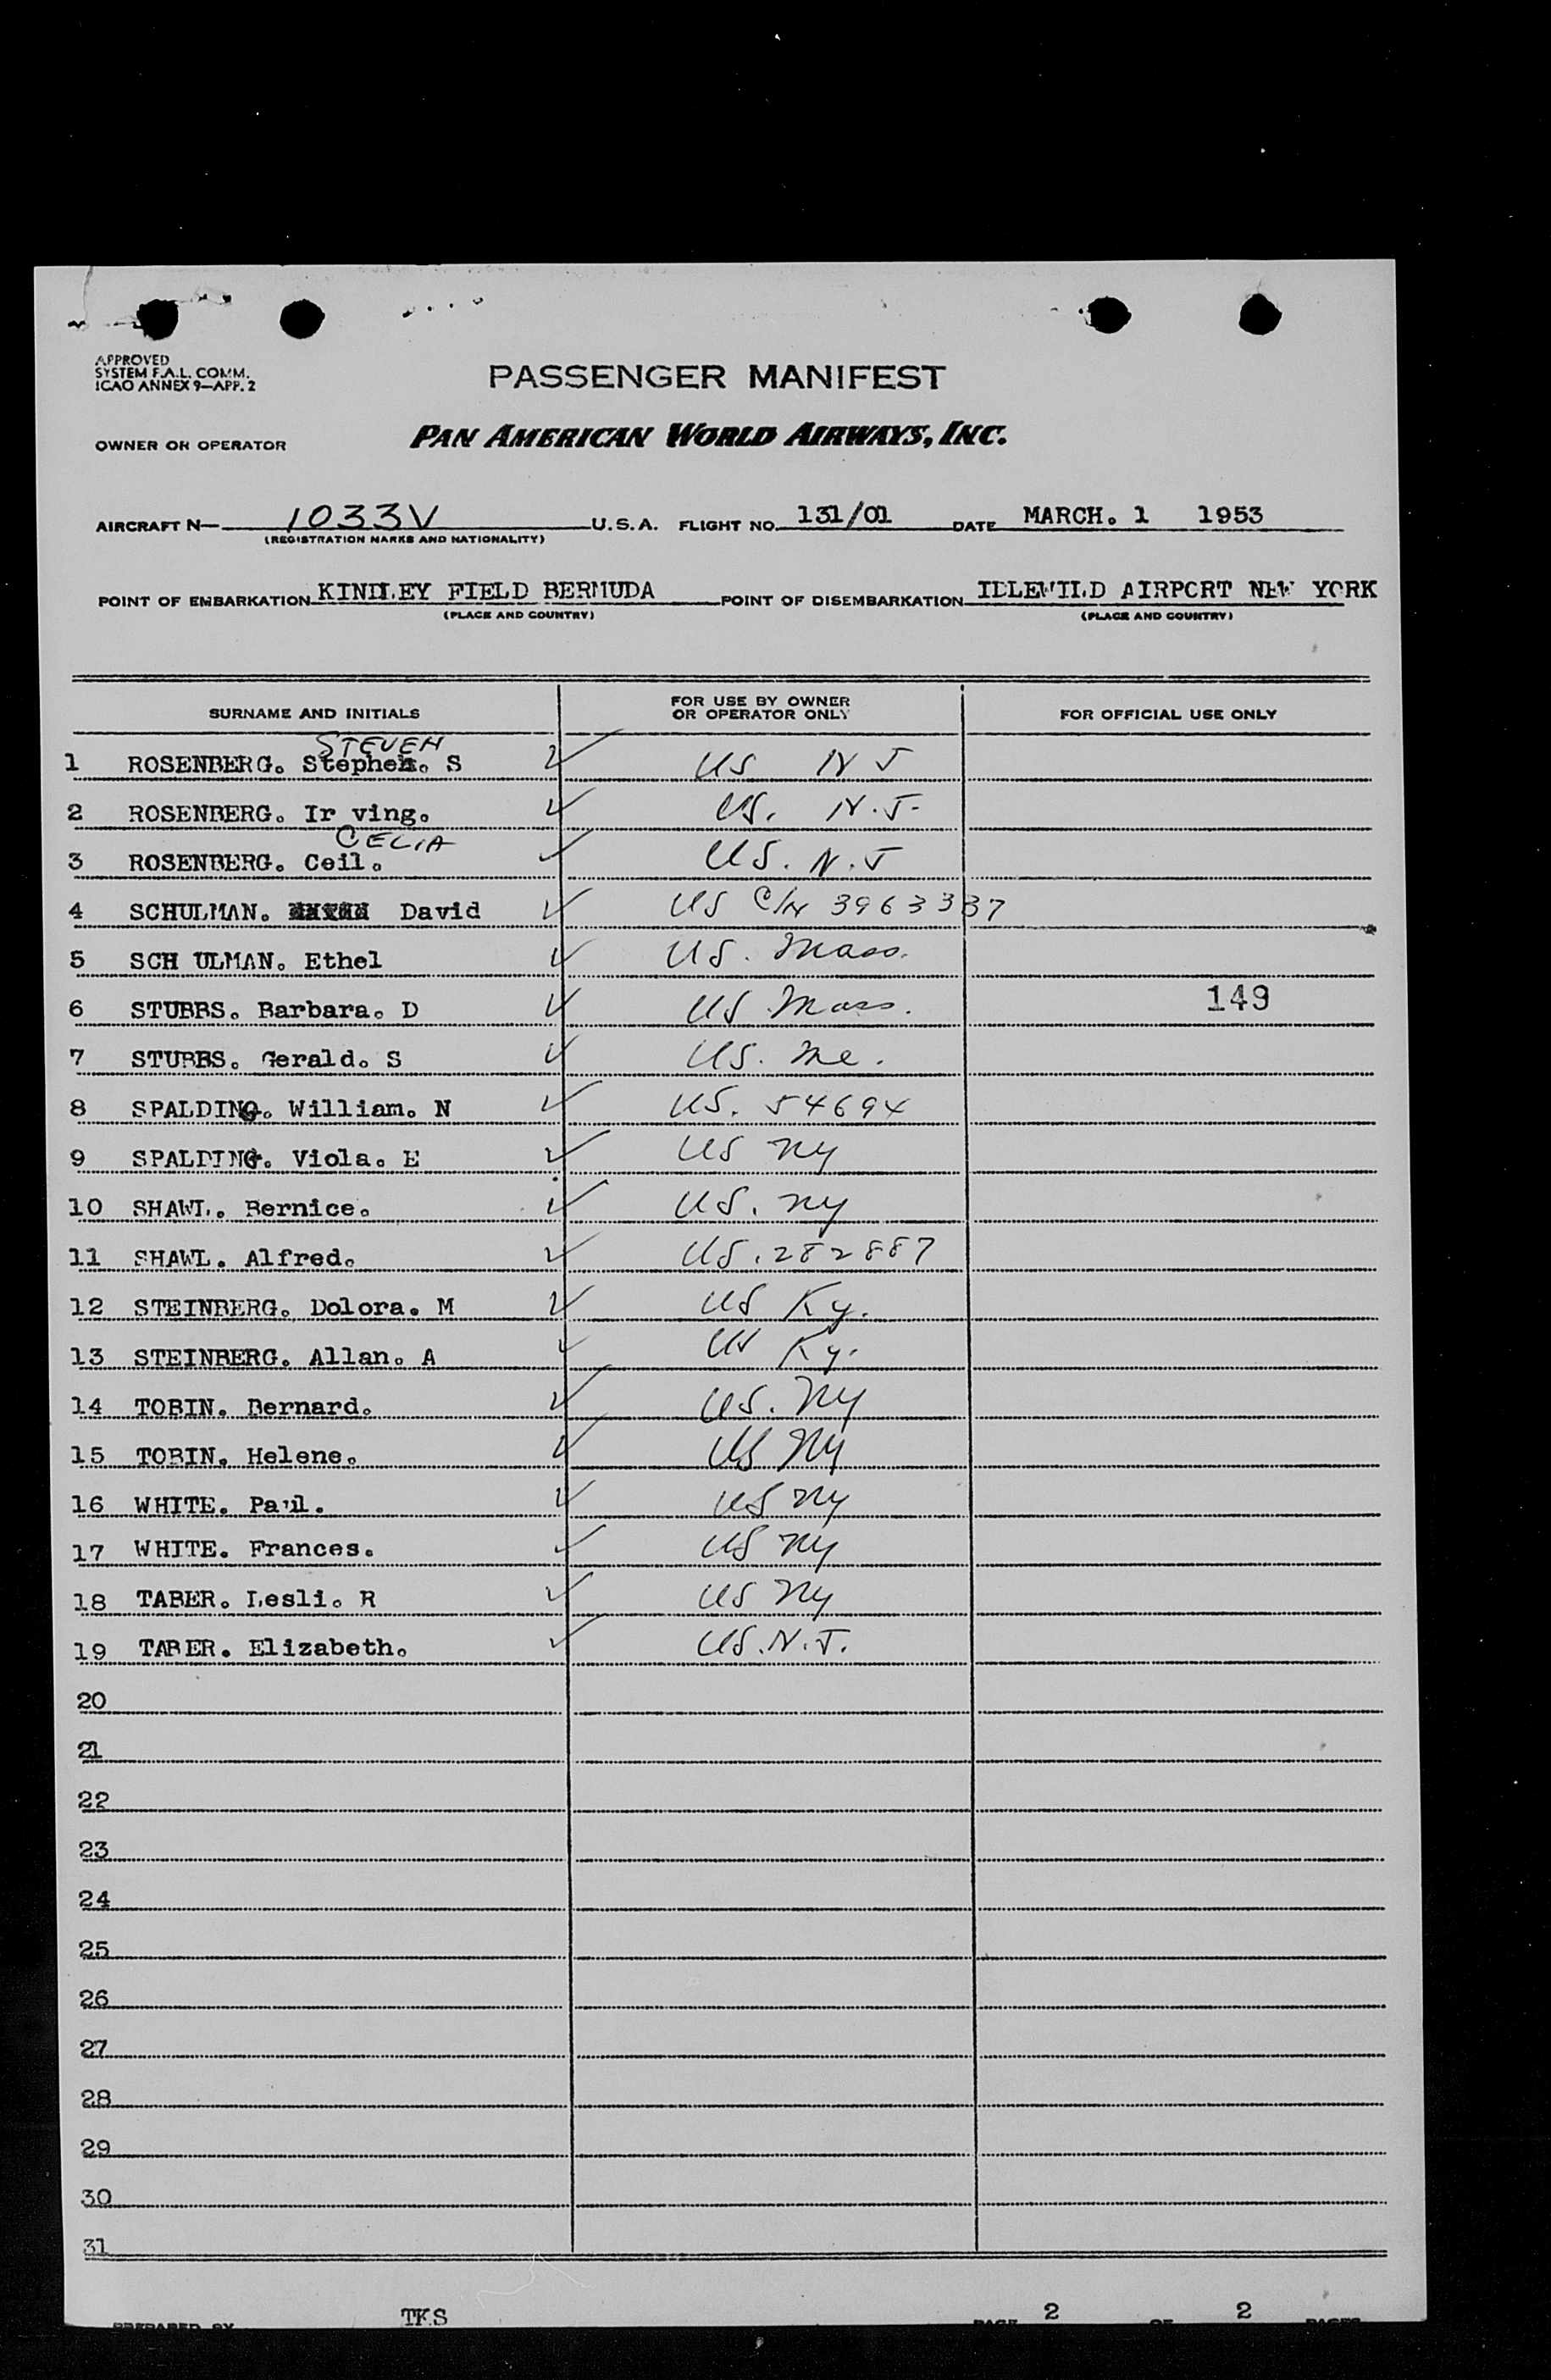 APPROVED
SYSTEM F.A.L. COMM.
ICAO ANNEX 9—APP. 2
PASSENGER MANIFEST
OWNER OR OPERATOR PAN AMERICAN WORLD AIRWAYS, INC.
AIRCRAFT N— 1033V U.S.A. FLIGHT NO. 131/01 DATE MARCH. 1 1953
(REGISTRATION MARKS AND NATIONALITY)
POINT OF EMBARKATION KINDLEY FIELD BERMUDA POINT OF DISEMBARKATION IDLEWILD AIRPORT NEW YORK
(PLACE AND COUNTRY) (PLACE AND COUNTRY)
SURNAME AND INITIALS FOR USE BY OWNER OR OPERATOR ONLY FOR OFFICIAL USE ONLY
STEVEN
1 ROSENBERG. Stephen. S ✓ US N J
2 ROSENBERG. Ir ving. ✓ US. N.J.
CELIA
3 ROSENBERG. Ceil. ✓ US. N.J
4 SCHULMAN. David ✓ US C/N 3963337
5 SCH ULMAN. Ethel ✓ US. Mass.
6 STUBBS. Barbara. D ✓ US Mass. 149
7 STUBBS. Gerald. S ✓ US. Me.
8 SPALDING. William. N ✓ US. 54694
9 SPALDING. Viola. E ✓ US NY
10 SHAWL. Bernice. ✓ US. NY
11 SHAWL. Alfred. ✓ US. 282887
12 STEINBERG. Dolora. M ✓ US Ky.
13 STEINBERG. Allan. A ✓ US Ky.
14 TOBIN. Bernard. ✓ US. NY
15 TOBIN. Helene. ✓ US NY
16 WHITE. Paul. ✓ US NY
17 WHITE. Frances. ✓ US NY
18 TABER. Lesli. R ✓ US NY
19 TABER. Elizabeth. ✓ US. N.J.
20
21
22
23
24
25
26
27
28
29
30
31
PREPARED BY TKS PAGE 2 OF 2 PAGES